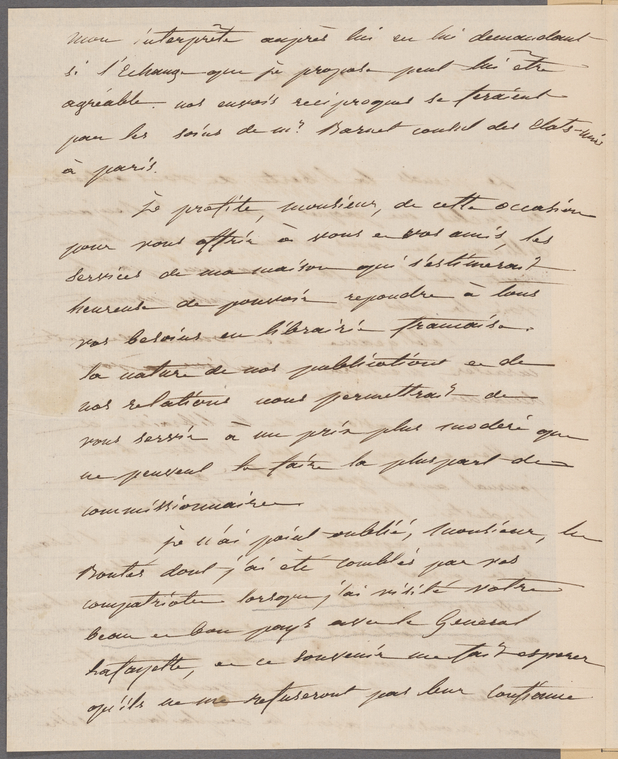 mon interprête auprès lui en lui demandant
si l'Echange que je propose peut lui être
agréable. nos envois réciproques se feraient
par les soins de mr. Barnet consul des Etats-unis
à paris.
Je profite, monsieur, de cette occasion
pour vous offrir à vous et vos amis, les
services de ma maison qui s'estimerait
heureuse de pouvoir repondre à tous
vos besoins en librairie francaise.
la nature de nos publications et de
nos relations nous permettrait de
vous servir à un prix plus moderé que
ne peuvent le faire la pluspart de
commissionnaires.
Je n'ai point oublié, monsieur, les
Bontés dont j'ai été comblés par vos
compatriotes lorsque j'ai visité votre
beau et bon pays avec le General
Lafayette, et ce souvenir me fait esperer
qu'ils ne me refuseront pas leur confiance